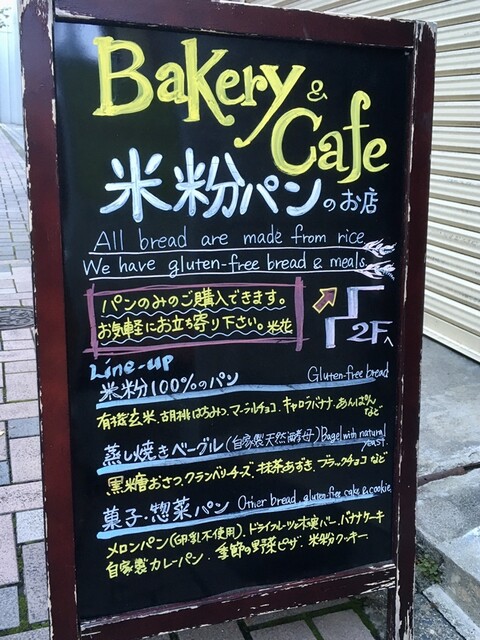 Bakery &
Cafe
米粉パンのお店
All bread are made from rice
We have gluten-free bread & meals.
パンのみのご購入できます。
お気軽にお立ち寄り下さい。米花
2Fへ
Line-up
米粉100%のパン Gluten-free bread
有機玄米、胡桃はちみつ、マーブルチョコ、キャロブバナナ、あんぱん など
蒸し焼きベーグル(自家製天然酵母) Bagel with natural yeast
黒糖おさつ、クランベリーチーズ、抹茶あずき、ブラックチョコ など
菓子・惣菜パン Other bread, gluten-free cake & cookie
メロンパン(卵乳不使用)、ドライフルーツと木の実バー、バナナケーキ
自家製カレーパン、季節の野菜ピザ、米粉クッキー